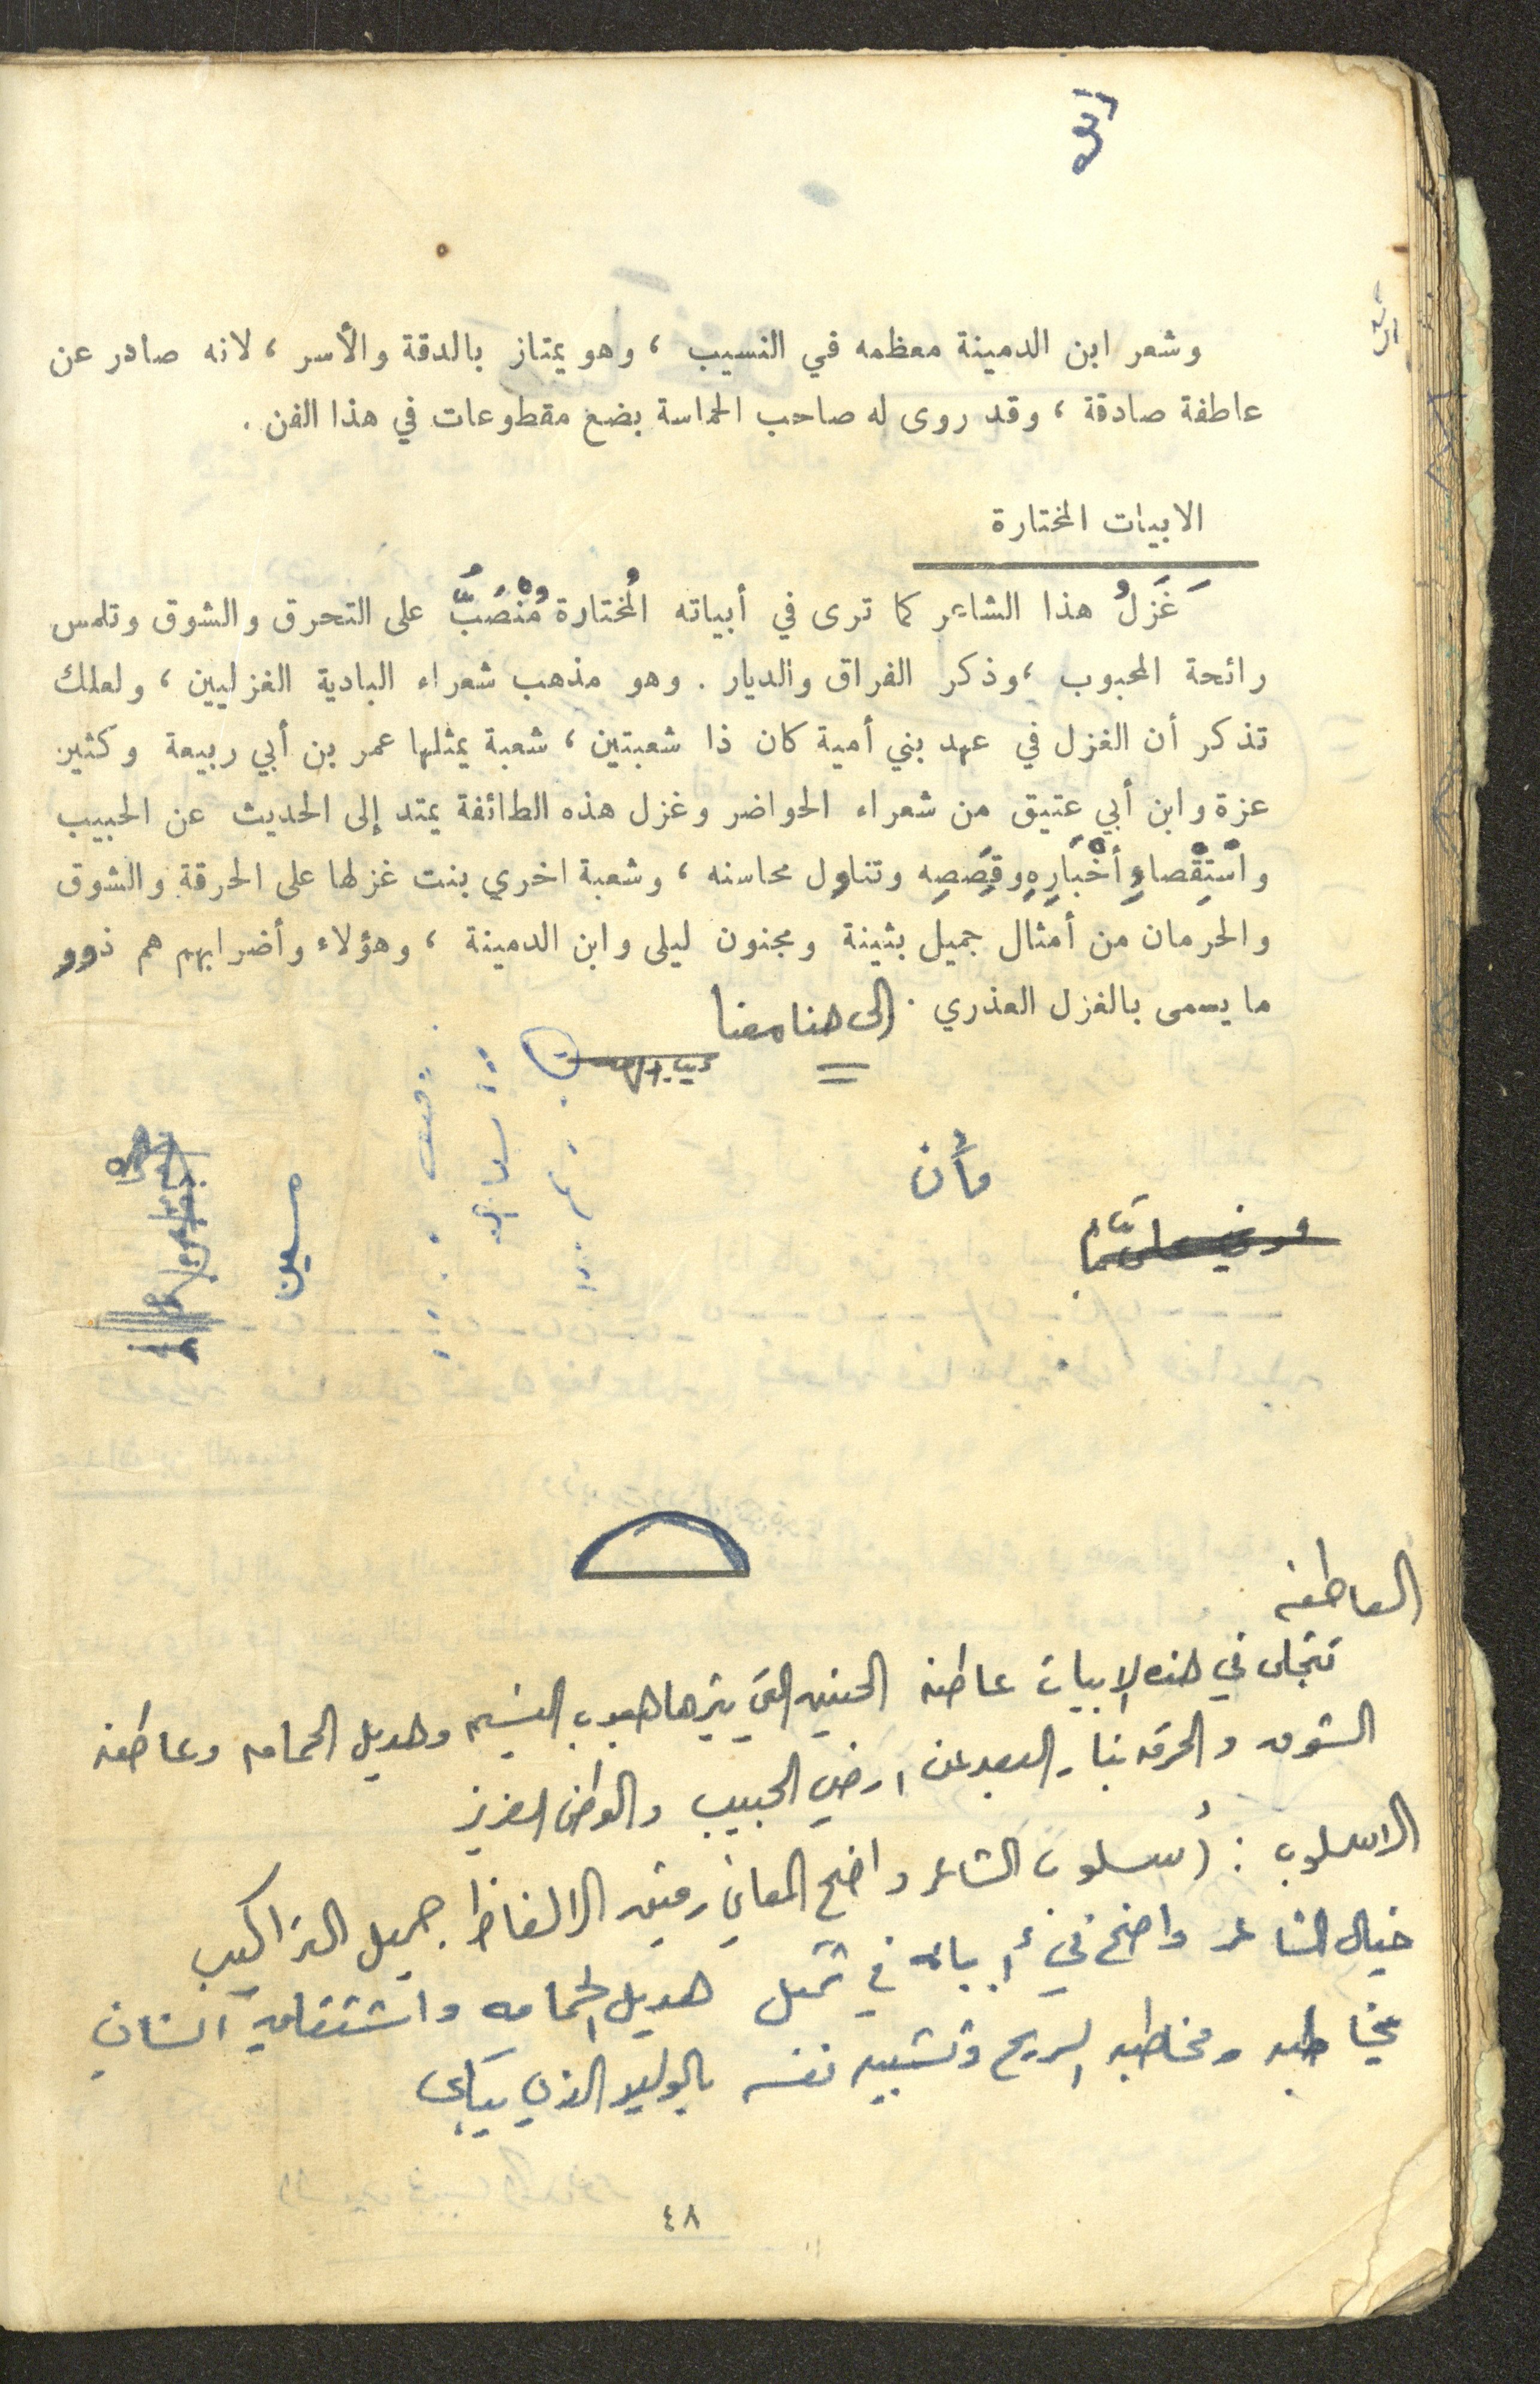 وشعر ابن الدمينة معظمه في النسيب ، وهو يمتاز بالدقة والأسر ، لانه صادر عن
عاطفة صادقة ، وقد روى له صاحب الحماسة بضع مقطوعات في هذا الفن .
الابيات المختارة
غَزَلُ هذا الشاعر كما ترى في أبياته المُختارة مُنْصَبٌّ على التحرق والشوق وتلمس
رائحة المحبوب ، وذكر الفراق والديار . وهو مذهب شعراء البادية الغزليين ، ولعلك
تذكر أن الغزل في عهد بني أمية كان ذا شعبتين ، شعبة يمثلها عمر بن أبي ربيعة وكثير
عزة وابن أبي عتيق من شعراء الحواضر وغزل هذه الطائفة يمتد إلى الحديث عن الحبيب
واسْتِقْصاءِ أَخْبَارِهِ وقِصَصِه وتناول محاسنه ، وشعبة اخري بنت غزلها على الحرقة والشوق
والحرمان من أمثال جميل بثينة ومجنون ليلى وابن الدمينة ، وهؤلاء وأضرابهم هم ذوو
ما يسمى بالغزل العذري . إلى هنا معنا
وأن
حسين
العاطفه
تتجلى في هذه الابيات عاطفه الحنين التي يثيرها هبوب النسيم وهديل الحمامه وعاطفه
الشوق والحرقه بنار البعد عن ارض الحبيب والوطن العزيز
الاسلوب : أسلوب الشاعر واضح المعاني رقيق الالفاظ جميل التراكيب
خيال الشاعر واضح في أبياته في تمثل هديل الحمامه
يخاطبه ومخاطبه الريح وتشبيه نفسه بالوليد الذي يبكى
٤٨